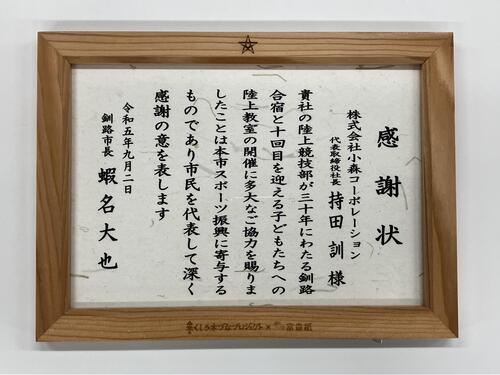 感謝状
株式会社小森コーポレーション
代表取締役社長 持田訓様
貴社の陸上競技部が三十年にわたる釧路
合宿と十回目を迎える子どもたちへの
陸上教室の開催に多大なご協力を賜りま
したことは本市スポーツ振興に寄与する
ものであり市民を代表して深く
感謝の意を表します
令和五年九月二日
釧路市長 蝦名大也
くしろ木づなプロジェクト×富貴紙